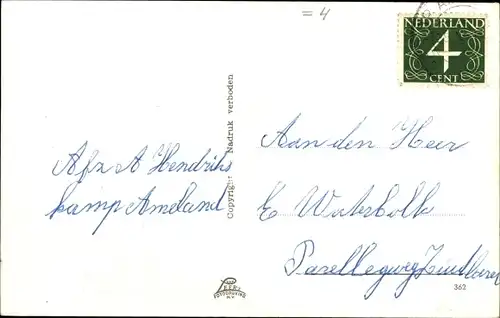 = 4
NEDERLAND
4
CENT
Afz A Hendriks
kamp Ameland
Copyright Nadruk verboden
Aan den Heer
E Waterbolk
362